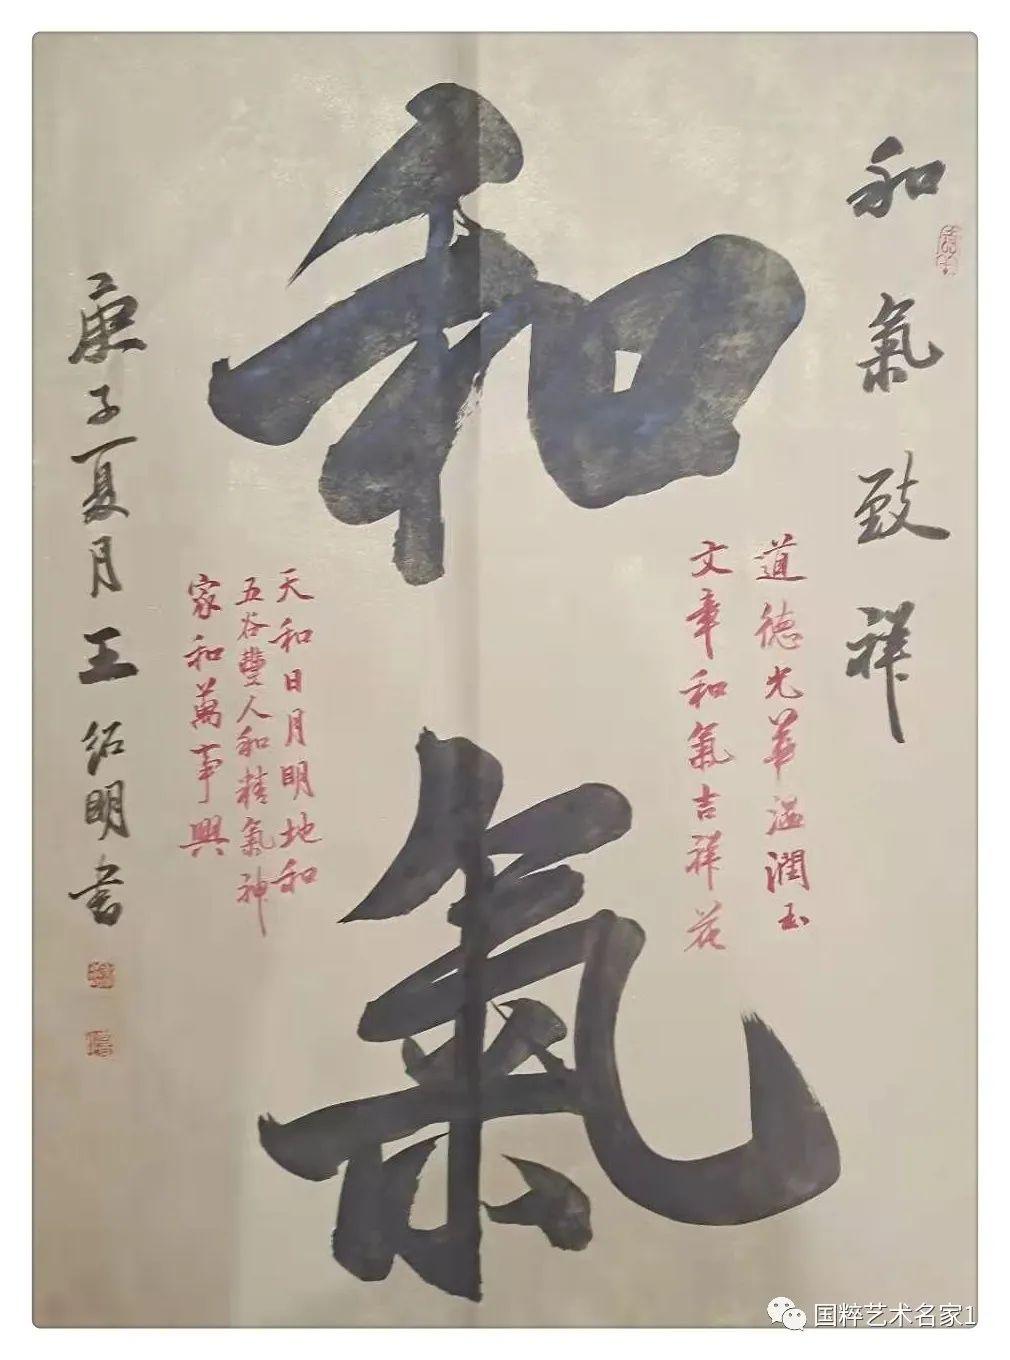 和氣致祥
道德光華溫潤玉
文章和氣吉祥花
和氣
天和日月明地和
五谷豐人和精氣神
家和萬事興
庚子夏月王绍明书
国粹艺术名家1